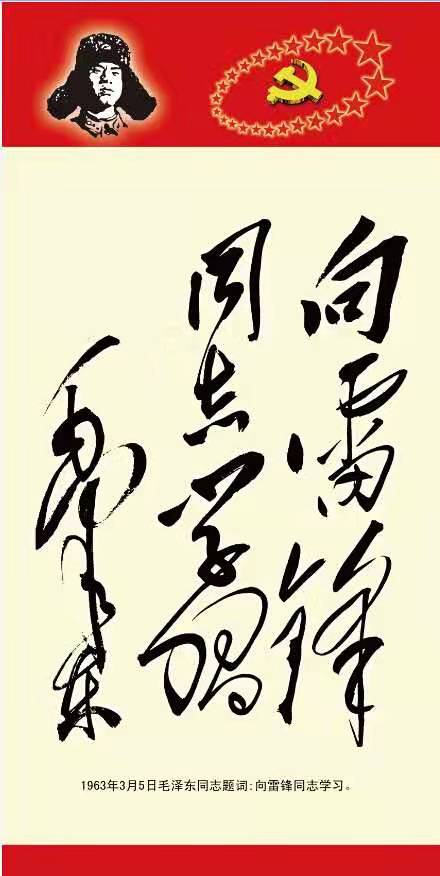 向雷锋
同志学习
毛泽东
1963年3月5日毛泽东同志题词:向雷锋同志学习。